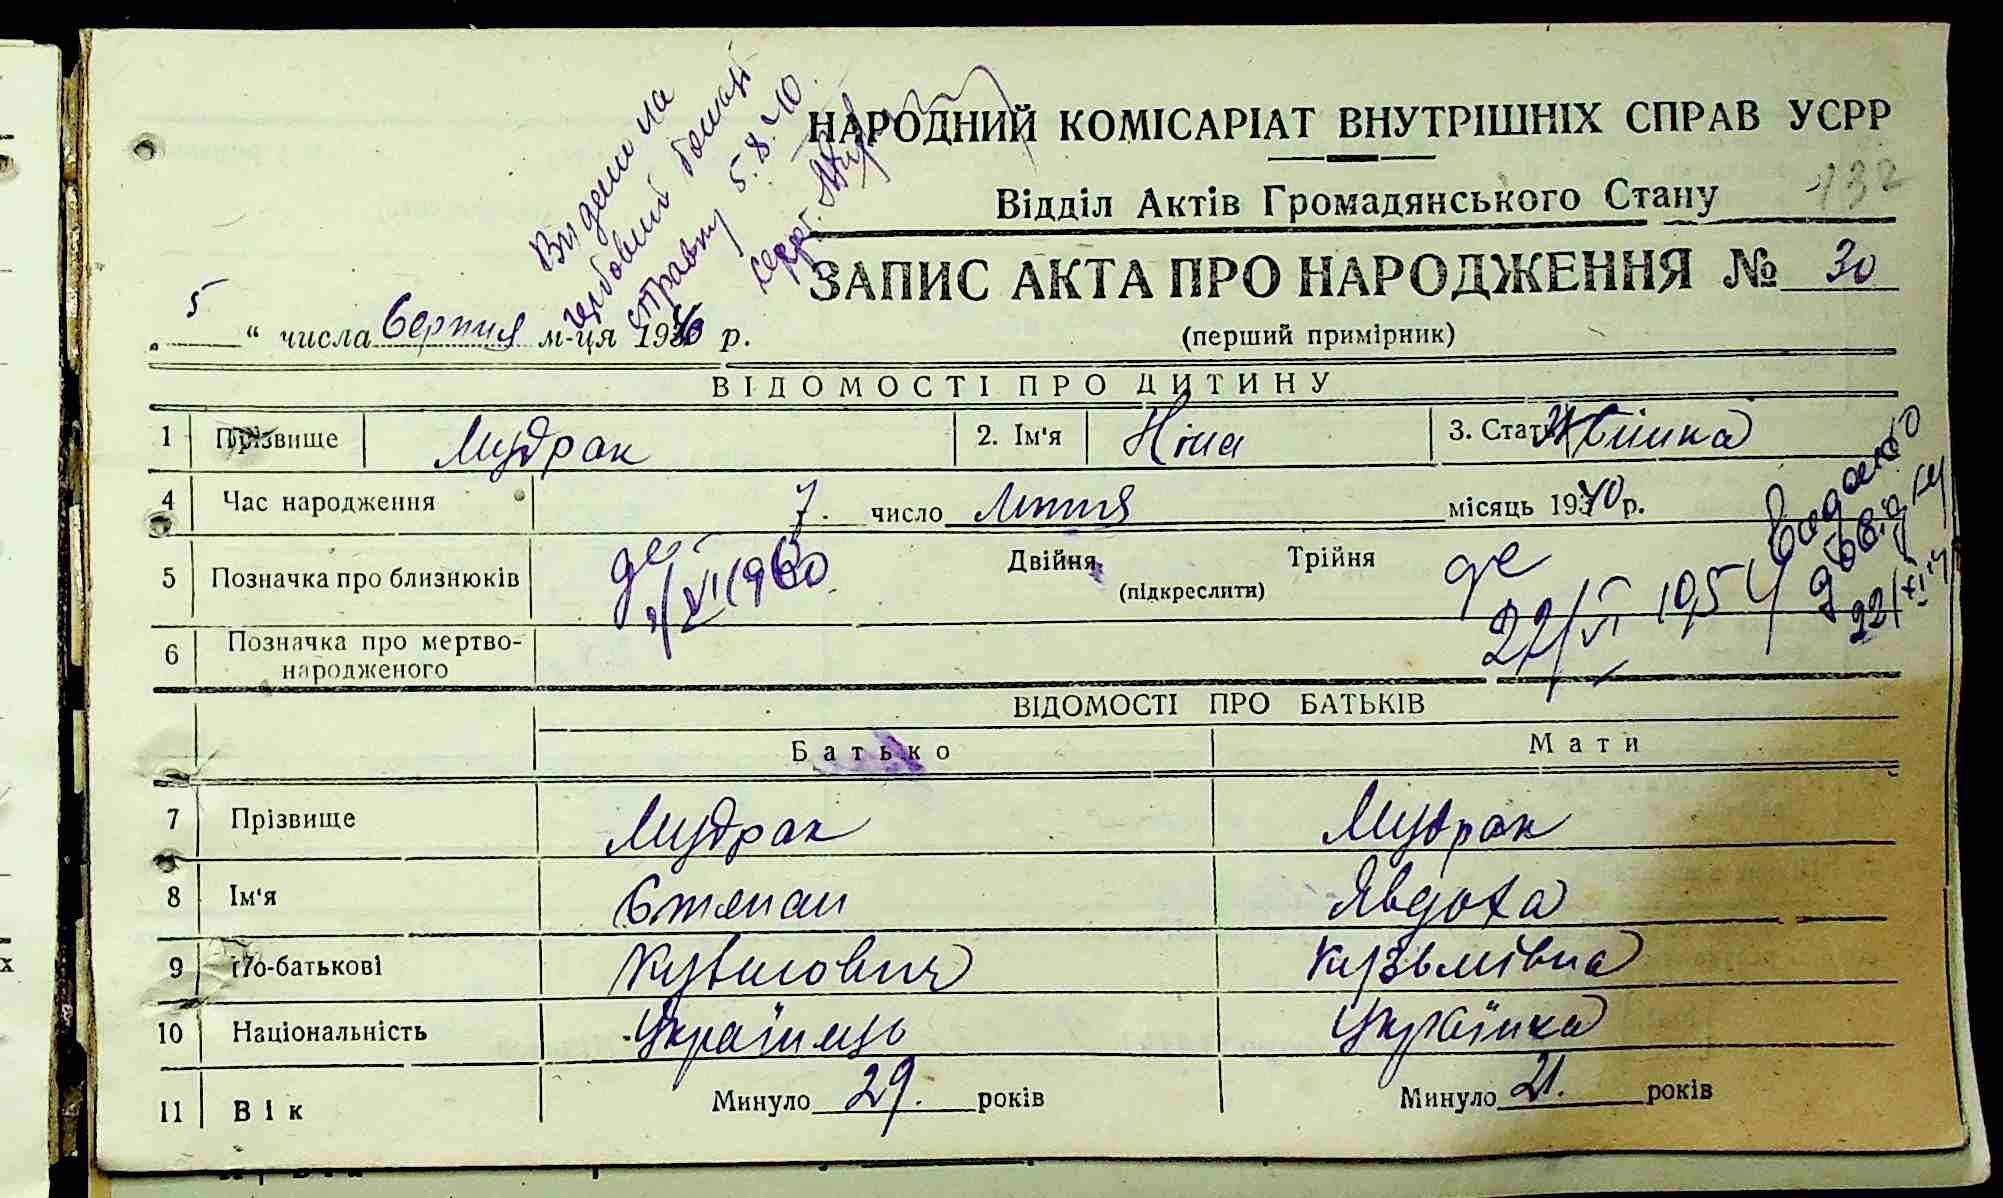 НАРОДНИЙ КОМІСАРІАТ ВНУТРІШНІХ СПРАВ УСРР
Відділ Актів Громадянського Стану
132
ЗАПИС АКТА ПРО НАРОДЖЕННЯ № 30
(перший примірник)
Видени на
гербовий бомазі
справку 5.8.40
секрт.
„ 5 “ числа Серпня м-ця 1940 р.
ВІДОМОСТІ ПРО ДИТИНУ
1 Прізвище Мудрак 2. Ім'я Ніна 3. Стать Жінка
4 Час народження 7. число Липня місяць 1940 р.
5 Позначка про близнюків Двійня, Трійня
(підкреслити)
де
VI 1960
де
22/VI 1954
видано
22/VI
6 Позначка про мертво-
народженого
ВІДОМОСТІ ПРО БАТЬКІВ
Батько Мати
7 Прізвище Мудрак Мудрак
8 Ім'я Степан Явдоха
9 По-батькові Кузьмівна
10 Національність Українець Українка
11 Вік Минуло 29. років Минуло 21. років